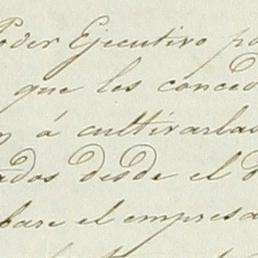 Poder Ejecutivo po
que les conced
n á cultivarlas
ados desde el d
bare el empresa